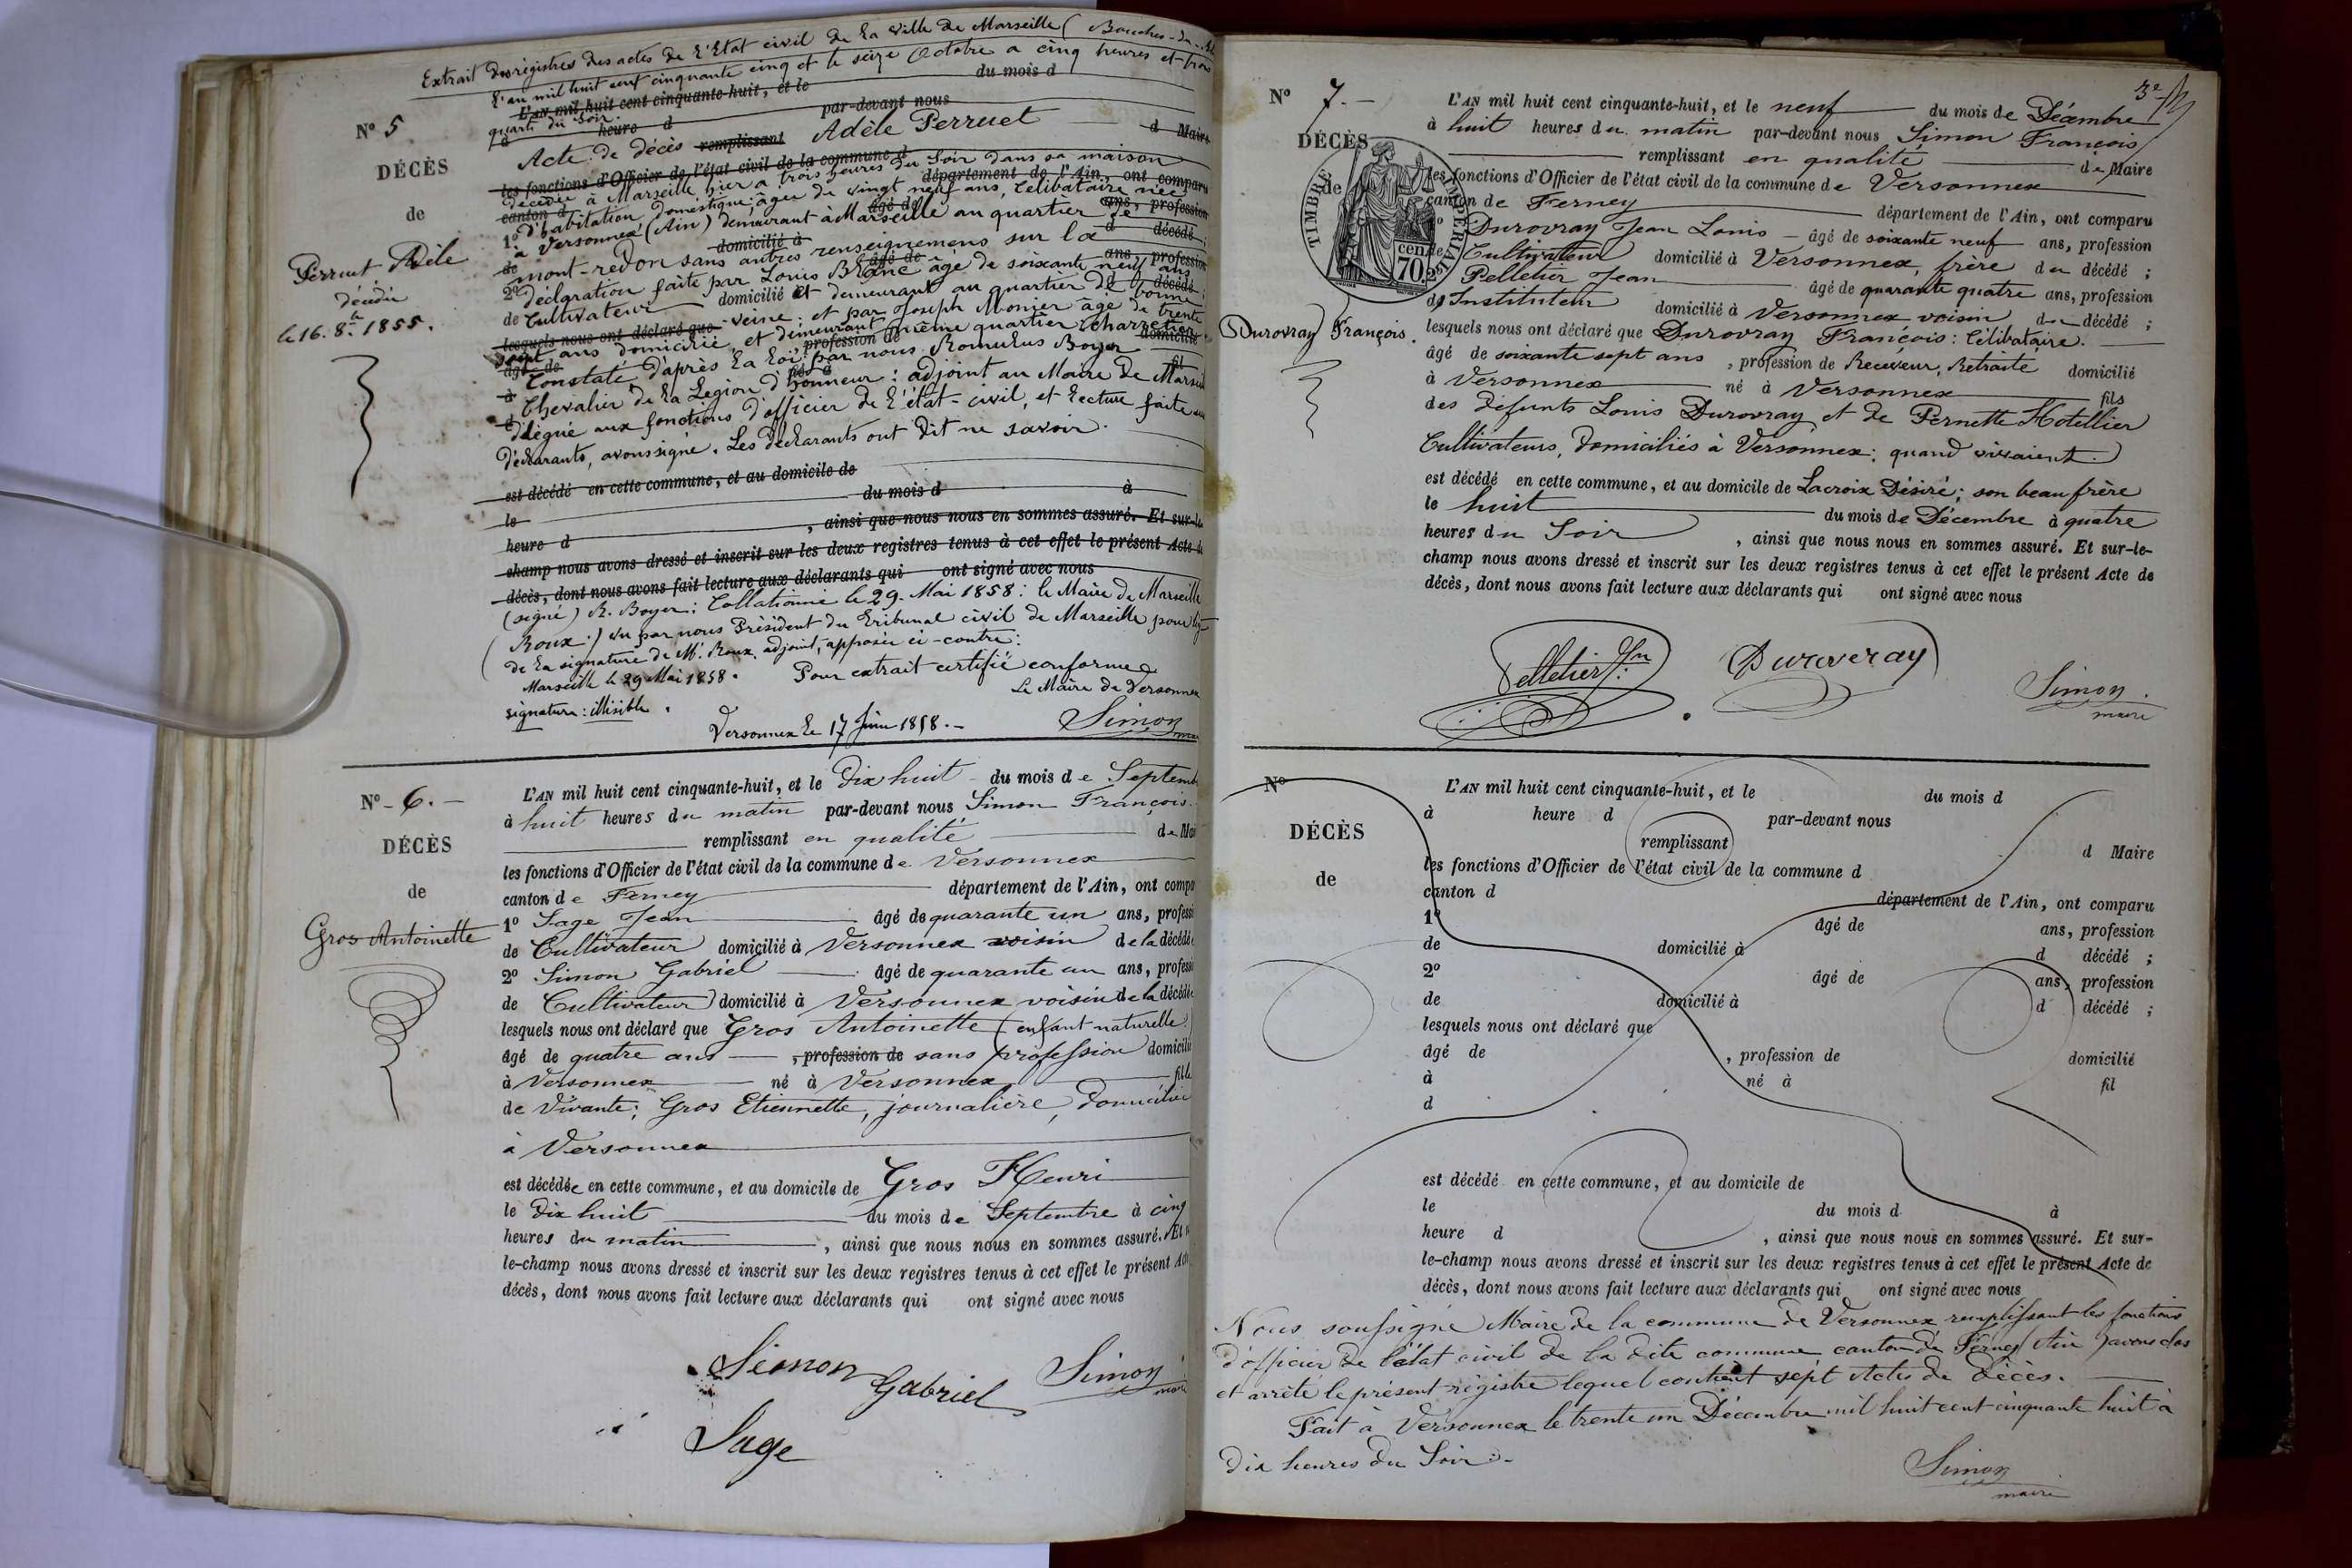 Extrait des registres des actes de l'Etat civil de la ville de Marseille (Bouches-du-
L'an mil huit cent cinquante cinq et le seize Octobre a cinq heures et trois
L'AN mil huit cent cinquante-huit, et le du mois d
quarts du soir.
à heure d par-devant nous
N° 5
Acte de décès remplissant Adèle Perruet d Maire
DÉCÈS
les fonctions d'Officier de l'état civil de la commune d
décédée à Marseille hier a trois heures du soir dans sa maison
canton d département de l'Ain, ont comparu
de
1° d'habitation, domestique: âgée de vingt neuf ans, célibataire née
âgé de ans, profession
à Versonnex (Ain) demeurant à Marseille au quartier de
Perruet Adèle
de domicilié à d décédé ;
mont-redon sans autres renseignemens sur la
2° âgé de ans, profession
déclaration faite par Louis Blanc âgé de soixante neuf ans
décédée
le 16. 8.bre 1855.
de Cultivateur domicilié à et demeurant au quartier de bonne décédé
lesquels nous ont déclaré que veine; et par Joseph Monier âgé de trente
sept ans domicilié et demeurant même quartier charretier.
âgé de profession de domicilié
Constaté d'après la loi: par nous Romulus Boyer
à né à fil
Chevalier de la Légion d'honneur: adjoint au Maire de Marseil
d délégué aux fonctions d'officier de l'état-civil, et lecture faite aux
déclarants, avons signé. Les déclarants ont dit ne savoir.
est décédé en cette commune, et au domicile de
le du mois d à
heure d , ainsi que nous nous en sommes assuré. Et sur-le-
champ nous avons dressé et inscrit sur les deux registres tenus à cet effet le présent Acte de
décès, dont nous avons fait lecture aux déclarants qui ont signé avec nous
(signé) R. Boyer: Collationné le 29. Mai 1858: le Maire de Marseille
(Roux.) vu par nous Président du Tribunal civil de Marseille pour lég-
de la signature de Mr. Roux, adjoint, apposée ci-contre:
Marseille le 29 Mai 1858. Pour extrait certifié conforme
Le Maire de Versonnex
signature: illisible.
Versonnex le 17 Juin 1858.- Simon
N°- 6.-
L'AN mil huit cent cinquante-huit, et le Dix huit du mois de Septemb
à huit heures du matin par-devant nous Simon François.
DÉCÈS
remplissant en qualité de Mai
les fonctions d'Officier de l'état civil de la commune de Versonnex
de
canton de Ferney département de l'Ain, ont compa
Gros Antoinette
1° Sage Jean âgé de quarante un ans, professi
de Cultivateur domicilié à Versonnex voisin de la décédé
2° Simon Gabriel âgé de quarante un ans, professi
de Cultivateur domicilié à Versonnex voisin de la décédée
lesquels nous ont déclaré que Gros Antoinette (enfant naturelle)
âgé de quatre ans , profession de sans profession domicilié
à Versonnex né à Versonnex fille
de Vivante; Gros Etiennette, journalière, domiciliée
à Versonnex
est décédée en cette commune, et au domicile de Gros Henri
le Dix huit du mois de Septembre à cinq
heures du matin , ainsi que nous nous en sommes assuré. Et
le-champ nous avons dressé et inscrit sur les deux registres tenus à cet effet le présent Act
décès, dont nous avons fait lecture aux déclarants qui ont signé avec nous
Simon Gabriel Simon
maire
Sage
3e
N° 7.-
L'AN mil huit cent cinquante-huit, et le neuf du mois de Décembre
à huit heures du matin par-devant nous Simon François
DÉCÈS
remplissant en qualité de Maire
de
les fonctions d'Officier de l'état civil de la commune de Versonnex
TIMBRE IMPÉRIAL
cent 70.
canton de Ferney département de l'Ain, ont comparu
1° Durovray Jean Louis - âgé de soixante neuf ans, profession
de Cultivateur domicilié à Versonnex, frère du décédé ;
2° Pelletier Jean âgé de quarante quatre ans, profession
de Instituteur domicilié à Versonnex voisin du décédé ;
Durovray François.
lesquels nous ont déclaré que Durovray François: Célibataire.
âgé de soixante sept ans , profession de Receveur, Retraité domicilié
à Versonnex né à Versonnex fils
des défunts Louis Durovray et de Pernette Hotellier
Cultivateurs, domiciliés à Versonnex; quand vivaient.
est décédé en cette commune, et au domicile de Lacroix Désiré; son beau frère
le huit du mois de Décembre à quatre
heures du Soir , ainsi que nous nous en sommes assuré. Et sur-le-
champ nous avons dressé et inscrit sur les deux registres tenus à cet effet le présent Acte de
décès, dont nous avons fait lecture aux déclarants qui ont signé avec nous
Pelletier Jn. Duroveray
Simon.
maire
N°
L'AN mil huit cent cinquante-huit, et le du mois d
à heure d par-devant nous
DÉCÈS
remplissant d Maire
les fonctions d'Officier de l'état civil de la commune d
de
canton d département de l'Ain, ont comparu
1° âgé de ans, profession
de domicilié à d décédé ;
2° âgé de ans, profession
de domicilié à d décédé ;
lesquels nous ont déclaré que
âgé de , profession de domicilié
à né à fil
d
est décédé en cette commune, et au domicile de
le du mois d à
heure d , ainsi que nous nous en sommes assuré. Et sur-
le-champ nous avons dressé et inscrit sur les deux registres tenus à cet effet le présent Acte de
décès, dont nous avons fait lecture aux déclarants qui ont signé avec nous
Nous soussigné Maire de la commune de Versonnex remplissant les fonctions
d'officier de l'état civil de la dite commune canton de Ferney (Ain) avons clos
et arrêté le présent régistre lequel contient sept Actes de décès.
Fait à Versonnex le trente un Décembre mil huit cent cinquante huit à
dix heures du Soir.-
Simon
maire